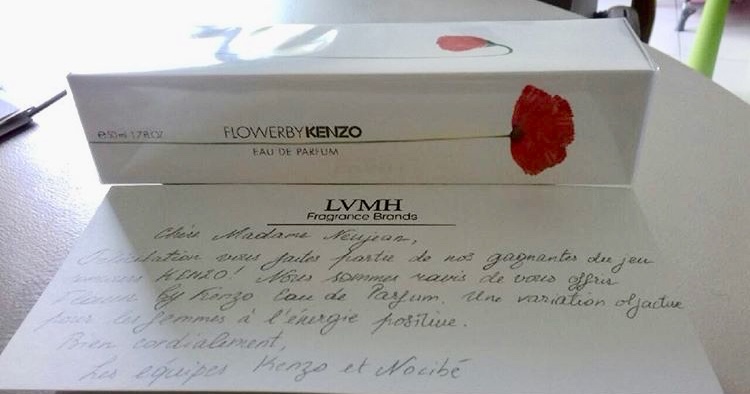 ℮50 ml 1.7 FL.OZ
FLOWERBYKENZO
EAU DE PARFUM
LVMH
Fragrance Brands
Chère Madame Neujean,
vous faites partie de nos gagnantes du jeu
KENZO! Nous sommes ravis de vous offrir
by Kenzo Eau de Parfum. Une variation olfactive
pour les femmes à l'énergie positive.
Bien cordialement,
Les équipes Kenzo et Nocibé